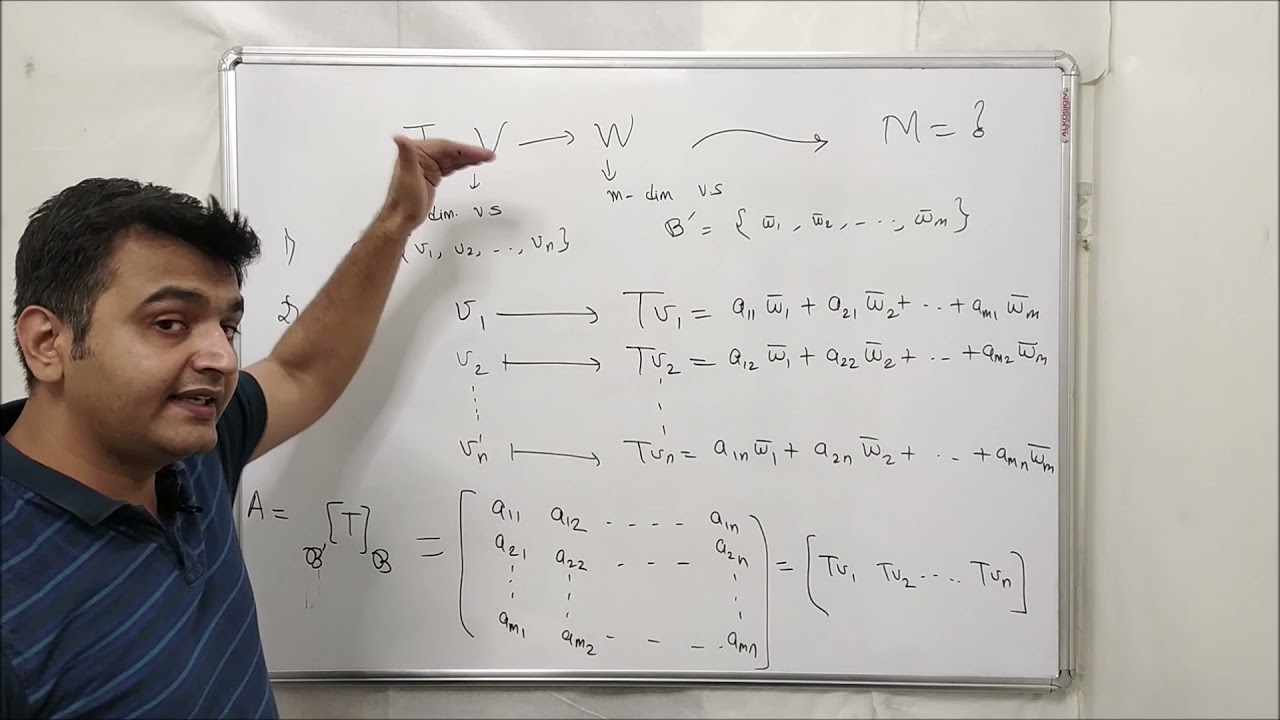 T V → W → M = ?
↓ ↓
dim. vs m- dim vs
1) {v₁, v₂, ..., vₙ} B' = {w̄₁, w̄₂, ..., w̄ₘ}
2) v₁ → Tv₁ = a₁₁ w̄₁ + a₂₁ w̄₂ + ... + aₘ₁ w̄ₘ
v₂ ↦ Tv₂ = a₁₂ w̄₁ + a₂₂ w̄₂ + ... + aₘ₂ w̄ₘ
⋮ ⋮
vₙ ↦ Tvₙ = a₁ₙ w̄₁ + a₂ₙ w̄₂ + ... + aₘₙ w̄ₘ
A = B'[T]B = [a₁₁ a₁₂ .... a₁ₙ
a₂₁ a₂₂ ... a₂ₙ
⋮ ⋮ ⋮
aₘ₁ aₘ₂ ... aₘₙ] = [Tv₁ Tv₂ .... Tvₙ]